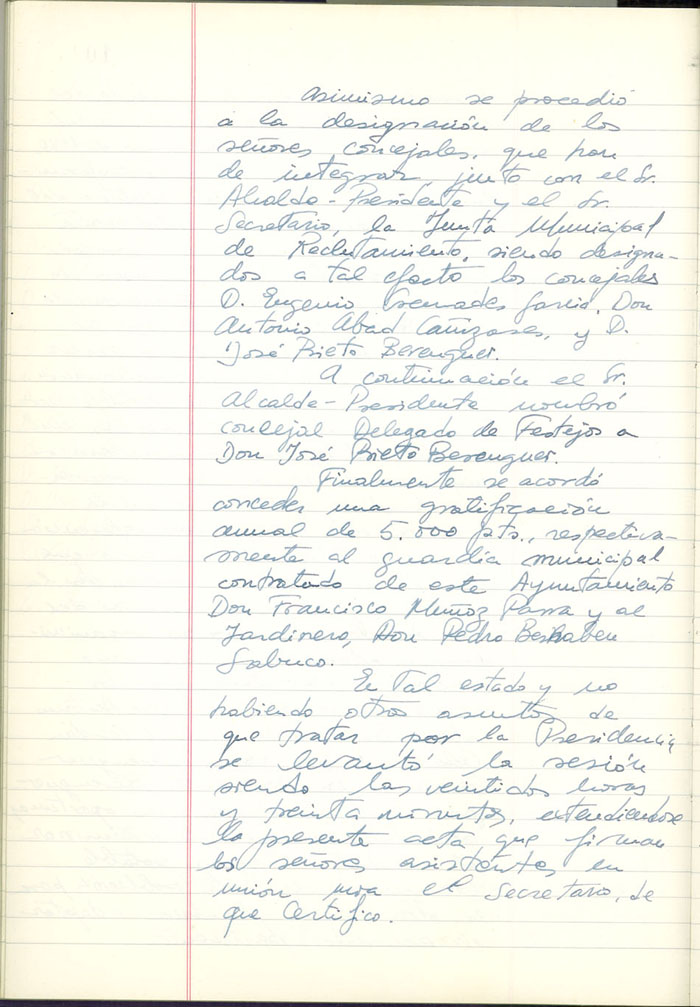 Asimismo se procedió
a la designación de los
señores concejales, que han
de integrar junto con el Sr.
Alcalde-Presidente y el Sr.
Secretario, la Junta Municipal
de Reclutamiento, siendo designa-
dos a tal efecto los concejales
D. Eugenio García, Don
Antonio Abad Cañizares, y D.
José Prieto Berenguer.
A continuación el Sr.
Alcalde-Presidente nombró
concejal Delegado de Festejos a
Don José Prieto Berenguer.
Finalmente se acordó
conceder una gratificación
anual de 5.000 pts., respectiva-
mente al guardia municipal
contratado de este Ayuntamiento
Don Francisco Muñoz Parra y al
Jardinero, Don Pedro
En tal estado y no
habiendo otros asuntos de
que tratar por la Presidencia
se levantó la sesión
siendo las veintidos horas
y treinta minutos, extendiendose
la presente acta que firman
los señores asistentes en
unión el Secretario, de
que Certifico.